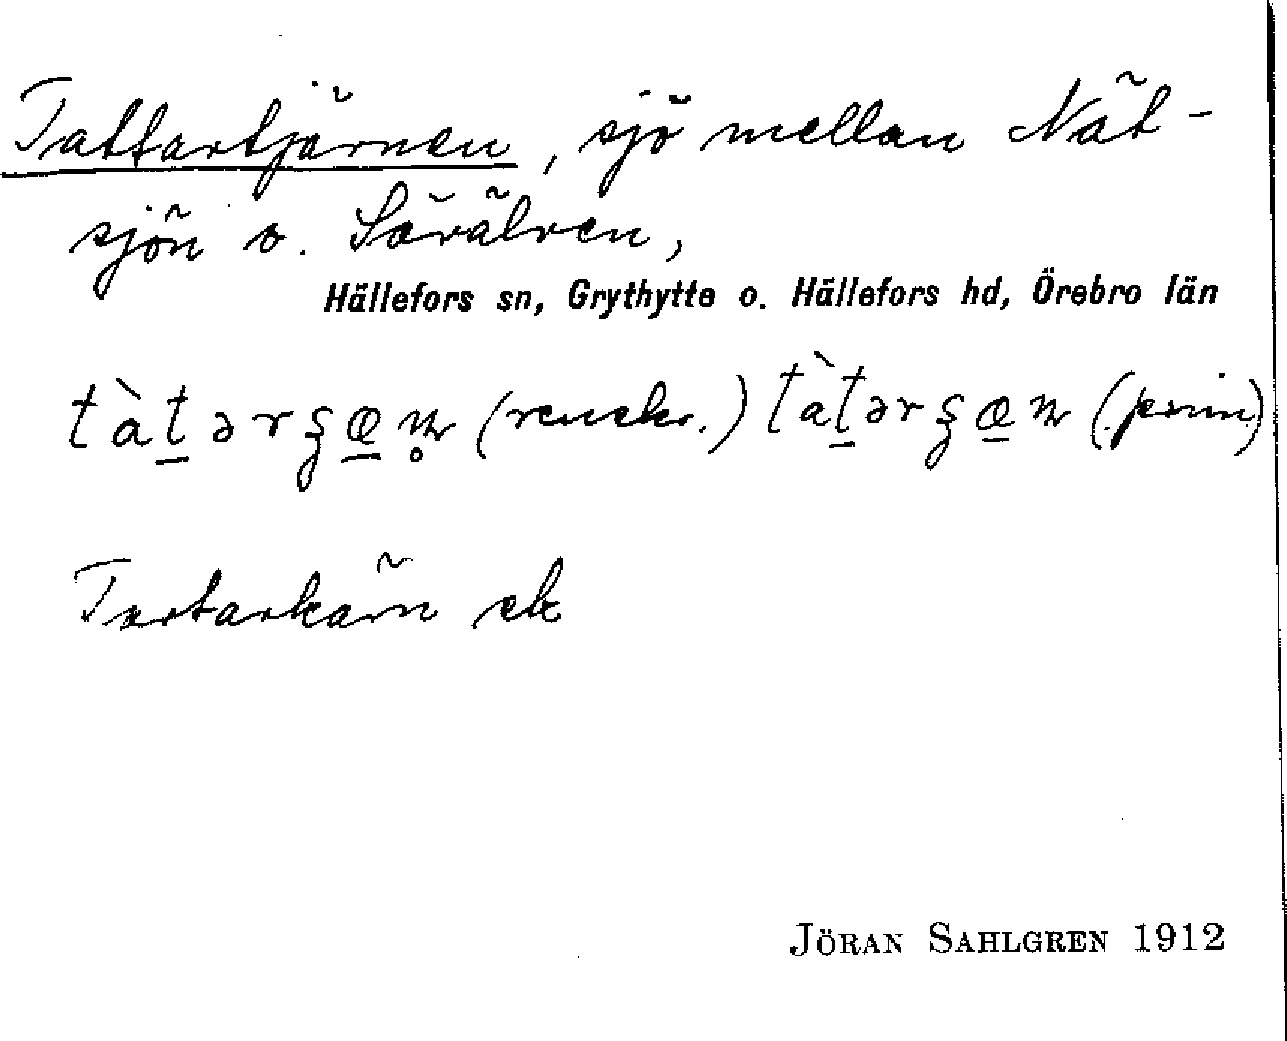 Tattartjärnen, sjö mellan Nät-
sjön o. Sävälven,
Hällefors sn, Grythytte o. Hällefors hd, Örebro län
tàt̲ərʂæ̲n̥ (renskr.) tàt̲ərʂæ̲n (prim)
Tartarkärn ek
JÖRAN SAHLGREN 1912